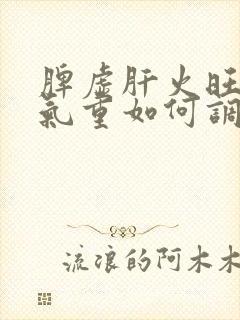 脾虚肝火旺
氣重如何調
流浪的阿木木